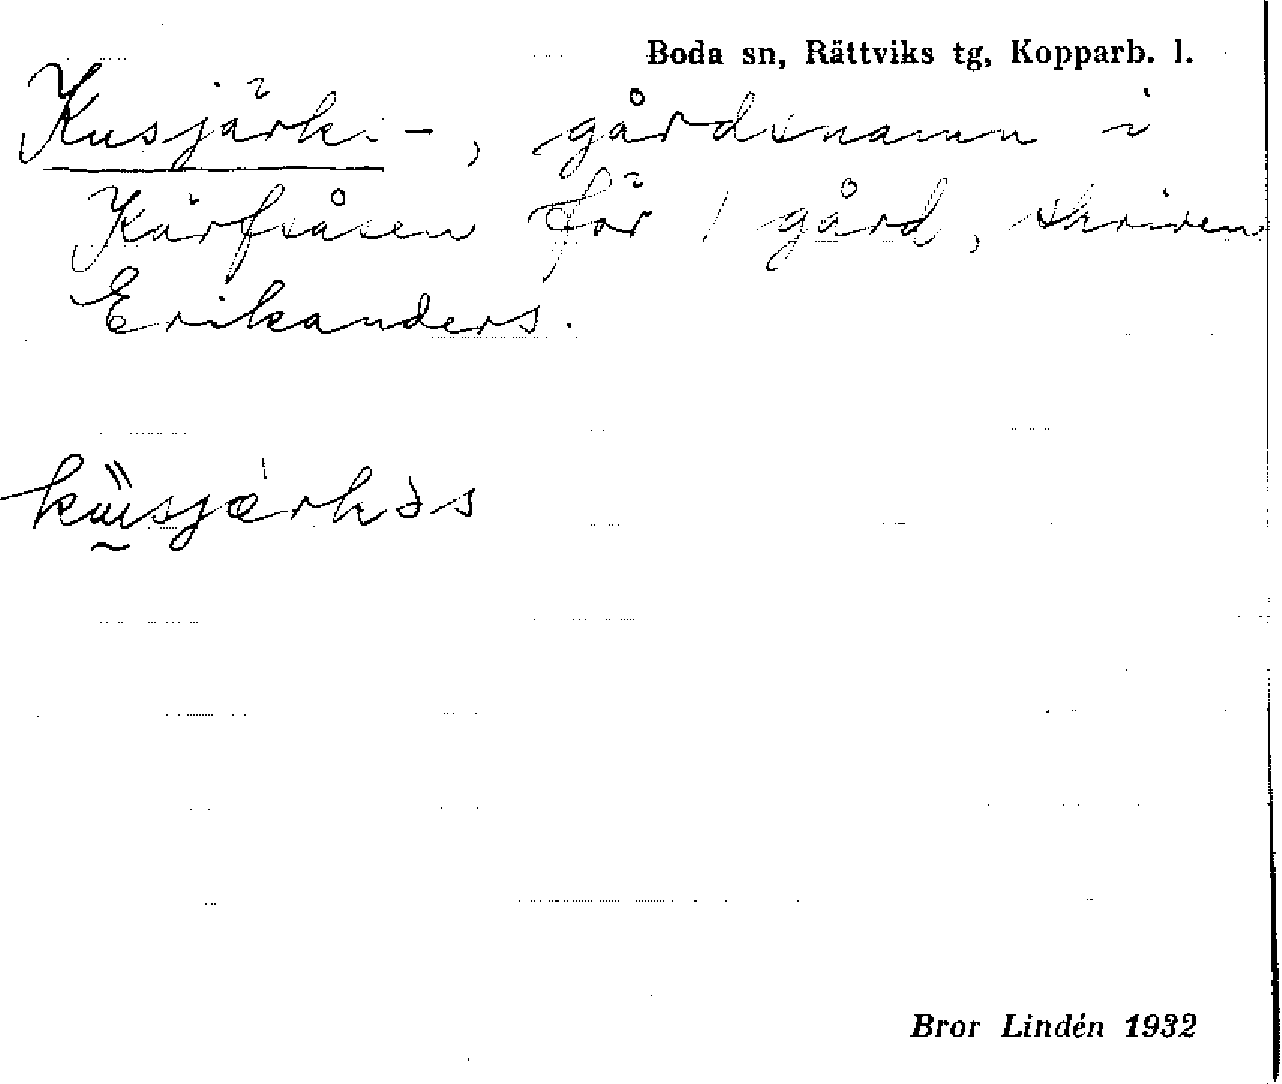 Boda sn, Rättviks tg, Kopparb. l.
Kusjärki-, gårdsnamn i
Kärfsåsen för 1 gård, skriven
Erikanders.
kusjærkəs
Bror Lindén 1932